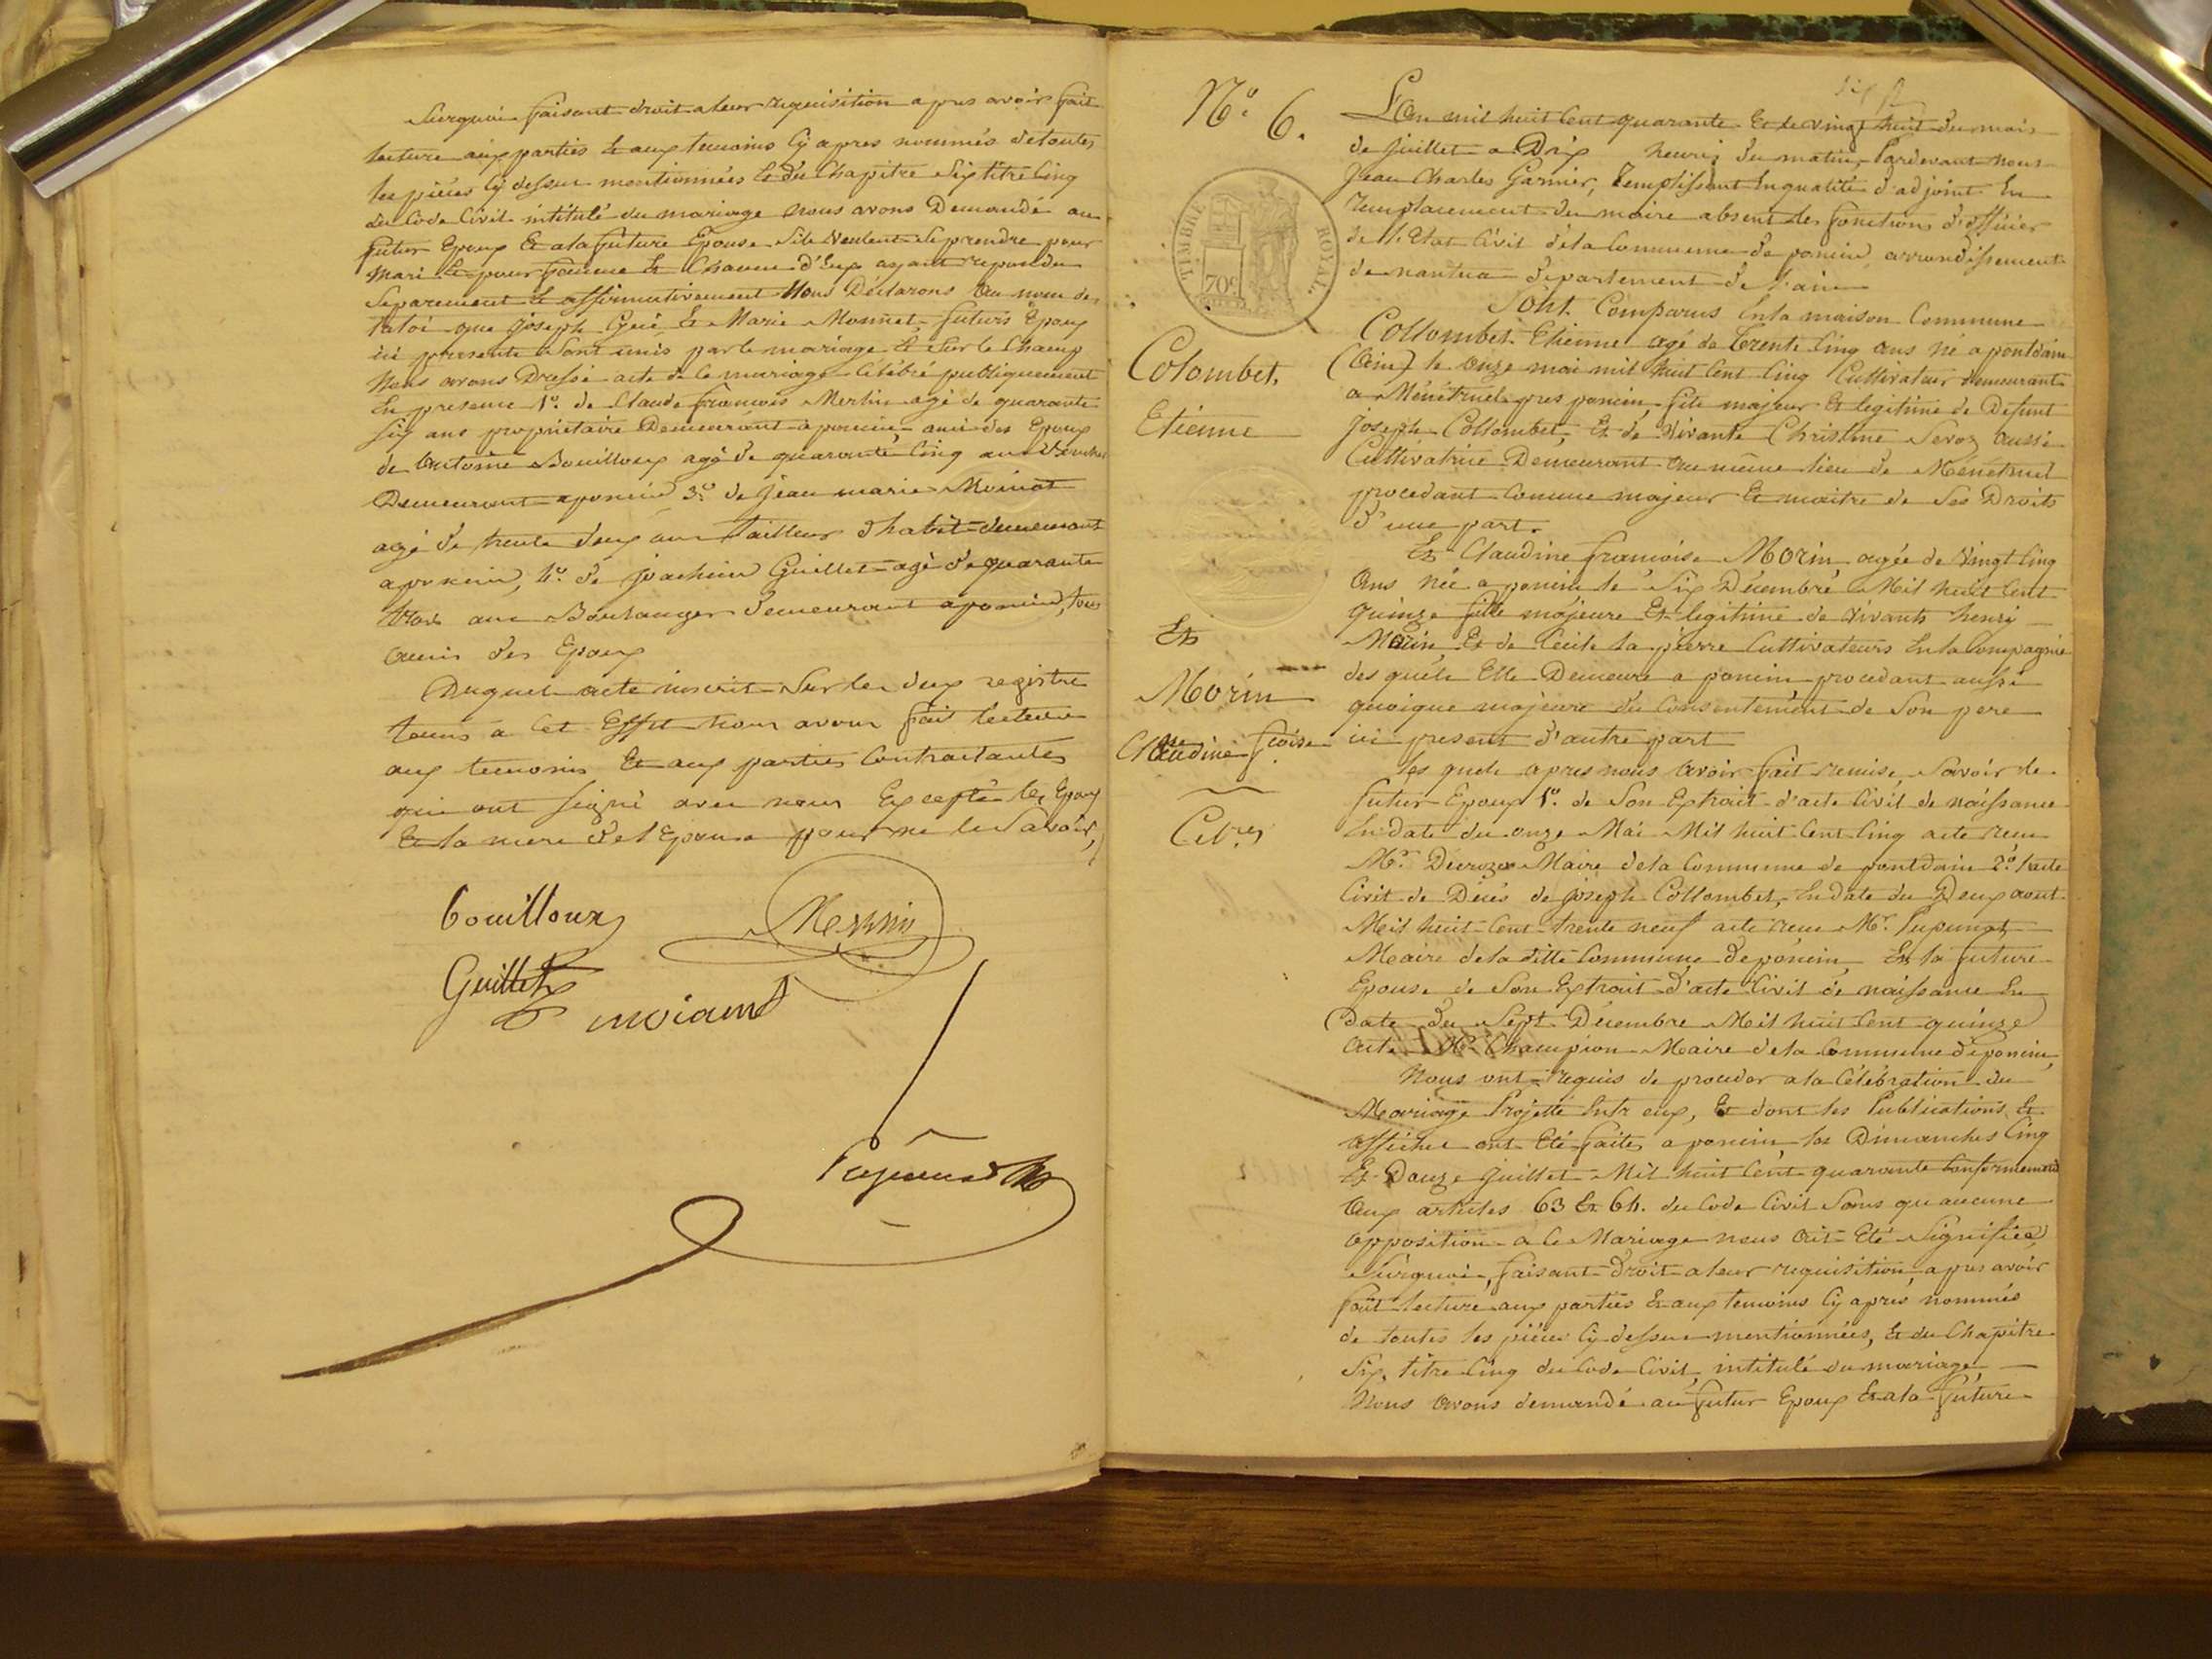 Surquoi faisant droit a leur requisition apres avoir fait
lecture aux parties et aux temoins cy apres nommés de toutes
les pièces cy dessus mentionnées et du Chapitre Six titre Cinq
du Code Civil intitulé du mariage nous avons Demandé au
futur Epoux et a la future Epouse s'ils veulent se prendre pour
mari et pour femme et chacun d'Eux ayant repondu
Separement et affirmativement Nous Déclarons au nom de
la loi que joseph et Marie Monnet futurs Epoux
ici presents Sont unis par le mariage et Sur le Champ
Nous avons Dressé acte de ce mariage Célébré publiquement
En presence 1º. de Claude françois Merlin agé de quarante
six ans propriétaire Demeurant a poncin, ami des Epoux
de Antoine Bouilloux agé de quarante Cinq ans
Demeurant a poncin 3º. de jean marie Moinat
agé de trente deux ans tailleur d'habit demeurant
a poncin, 4º. de joachim Guillet agé de quarante
trois ans Boulanger Demeurant a poncin, tous
amis des Epoux
Duquel acte inscrit Sur les deux registre
tenus a cet Effet nous avons fait lecture
aux temoins Et aux parties Contractantes
qui ont Signé avec nous Excepté les Epoux
Et la mere de l'Epouse pour ne le Savoir,
bouilloux Merlin
Guillet
Nº. 6.
L'An mil huit Cent quarante Et le vingt huit du mois
de juillet a Dix heures du matin, Pardevant nous
Jean Charles Garnier, remplissant En qualité d'adjoint En
remplacement du maire absent les fonctions d'officier
de l'Etat Civil de la Commune de poncin, arrondissement
de nantua département de l'ain
TIMBRE ROYAL.
70c
Sont Comparus En la maison Commune
Collombet Etienne agé de Trente Cinq ans né a pontdain
(ain) le onze mai mil huit Cent Cinq Cultivateur demeurant
a Ménétruel pres poncin, fils majeur Et legitime de Defunt
joseph Collombet, Et de Vivante Christine Sevoz aussi
Cultivatrice Demeurant au même lieu de Ménétruel
procedant Comme majeur Et maitre de Ses Droits
d'une part.
Colombet,
Etienne
Et
Morin
Claudine fcoise
Celres
Et Claudine françoise Morin agée de Vingt Cinq
ans née a poncin le Six Décembre Mil huit Cent
quinze fille majeure Et legitime de Vivants henri
Morin Et de Cecile la pierre Cultivateurs En la Compagnie
des quels Elle Demeure a poncin procedant aussi
quoique majeure du Consentement de Son pere
ici present d'autre part
Les quels apres nous avoir fait remise, Savoir le
futur Epoux 1º. de Son Extrait d'acte Civil de naissance
En date du onze Mai Mil huit Cent Cinq acte reçu
Mr. Maire de la Commune de pontdain 2º. l'acte
Civil de Décés de joseph Collombet, En date du Deux aout
Mil huit Cent trente neuf acte reçu Mr. Pupunat
Maire de la ditte Commune de poncin Et la future
Epouse de Son Extrait d'acte Civil de naissance En
date du Sept Décembre Mil huit Cent quinze
acte Mr. Champion Maire de la Commune de poncin,
Nous ont requis de proceder a la Célébration du
Mariage Projetté Entr eux, Et dont les Publications Et
affiches ont Eté faites a poncin les Dimanches Cinq
Et Douze juillet Mil huit Cent quarante Conformement
aux articles 63 Et 64. du Code Civil Sans qu aucune
opposition a ce Mariage nous ait Eté Signifiée
Surquoi, faisant Droit a leur requisition, apres avoir
fait lecture aux parties Et aux temoins Cy apres nommés
de toutes les pièces Cy dessus mentionnées, Et du Chapitre
Six, titre Cinq du Code Civil, intitulé du mariage
Nous avons demandé au futur Epoux Et a la future